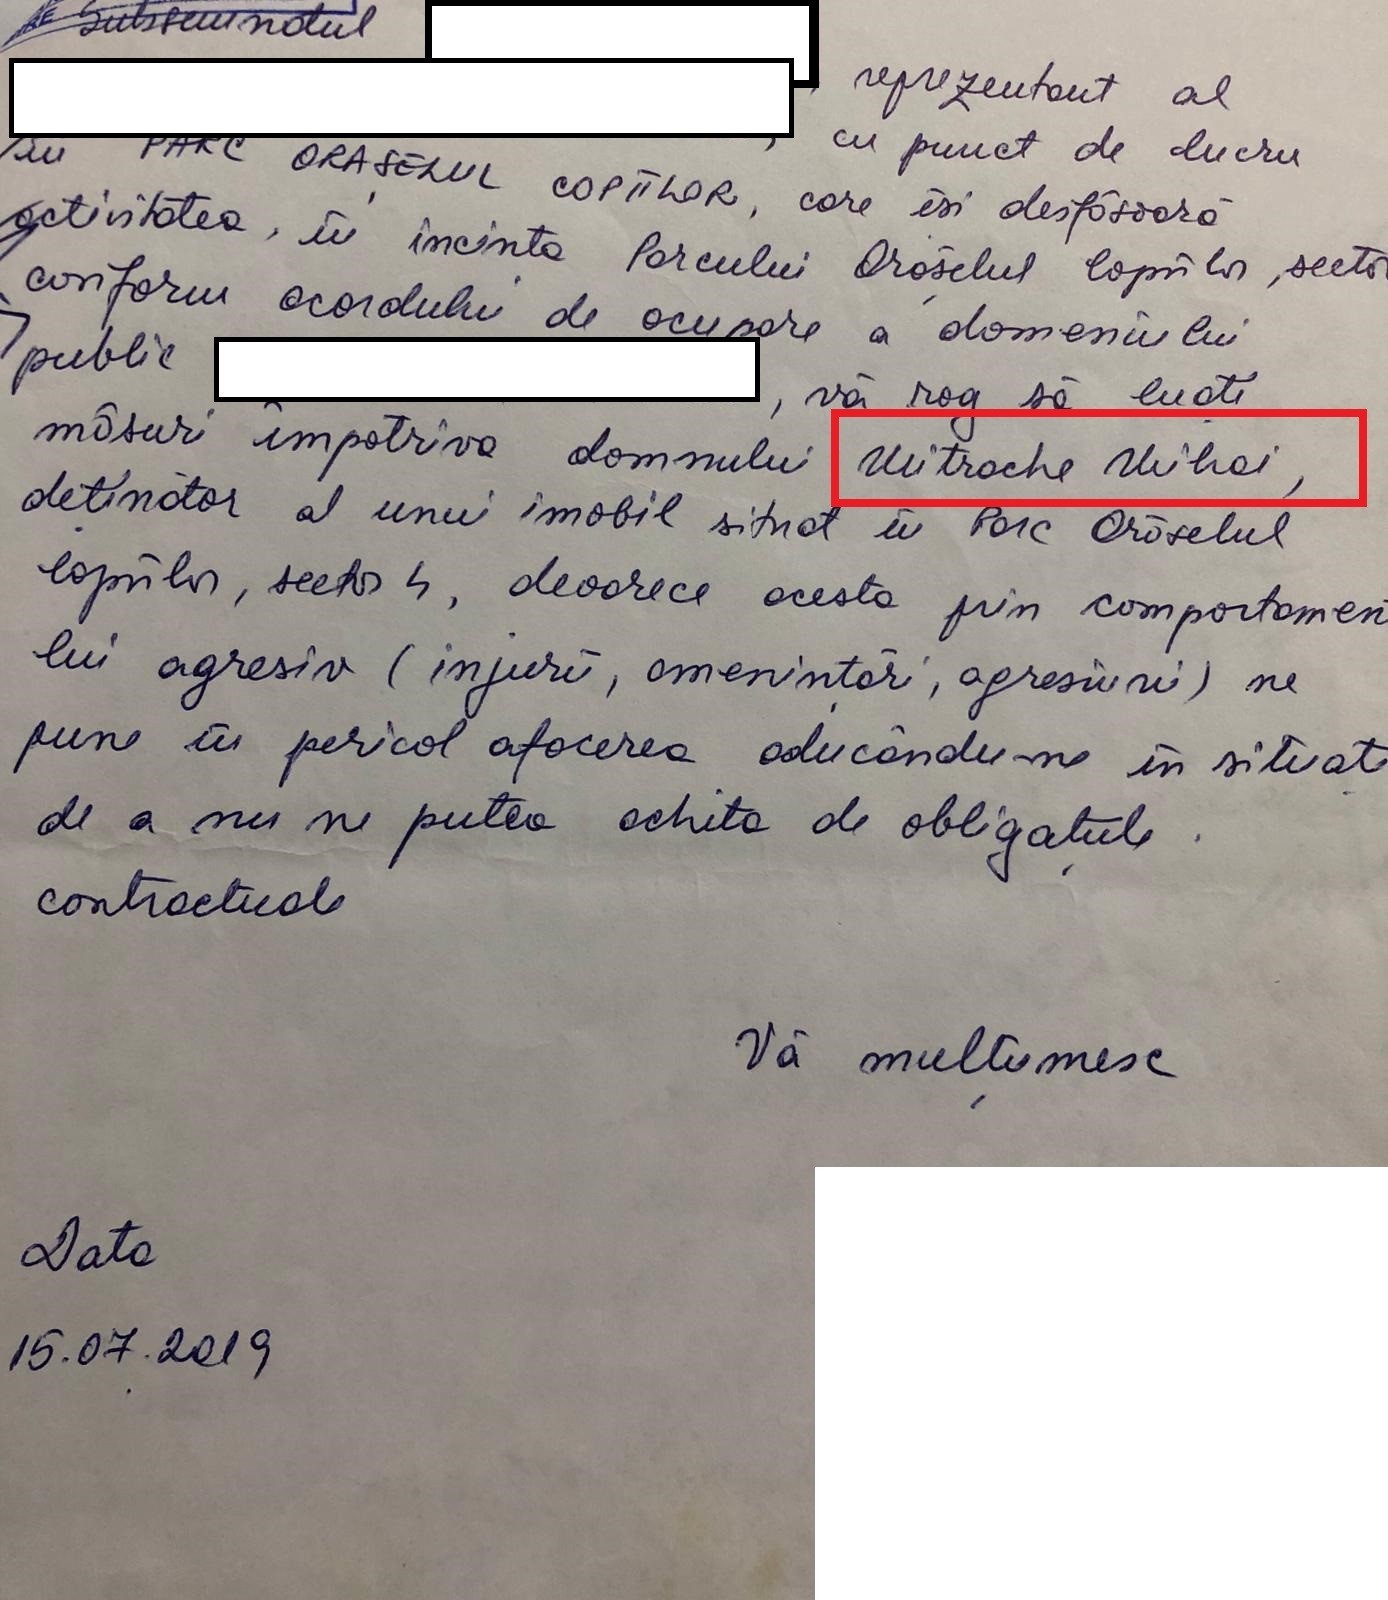 Subsemnatul
, reprezentant al
în PARC ORĂȘELUL COPIILOR, cu punct de lucru
care își desfășoară
activitatea, în incinta Parcului Orășelul Copiilor, sector
conform acordului de ocupare a domeniului
public , vă rog să luați
măsuri împotriva domnului Mitrache Mihai,
deținător al unui imobil situat în Parc Orășelul
Copiilor, sector 4, deoarece acesta prin comportamen
lui agresiv (injurii, amenințări, agresiuni) ne
pune în pericol afacerea aducându-ne în situaț
de a nu ne putea achita de obligațiile
contractuale
Vă mulțumesc
Data
15.07.2019